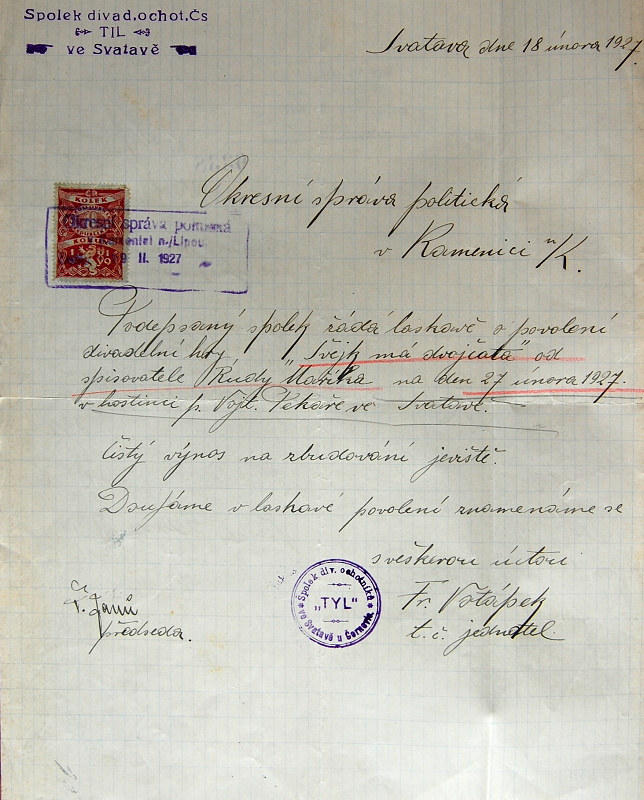 Spolek divad.ochot.Čs
TIL
ve Svatavě
Svatava dne 18 února 1927.
Okresní správa politická
v Kamenici n/L.
KOLEK
správa politická
Kamenici n./Lipou.
9 II. 1927
Podepsaný spolek žádá laskavě o povolení
divadelní hry „Švejk má dvojčata" od
spisovatele Rudy Maříka na den 27 února 1927.
v hostinci p. Vojt. Pekaře ve Svatavě.
Čistý výnos na zbudování jeviště.
Doufáme v laskavé povolení znamenáme se
s veškerou úctou
Fr. Votápek
t. č. jednatel.
F. Janů
předseda.
Spolek div. ochotníků
„TYL"
ve Svatavě u Černovic